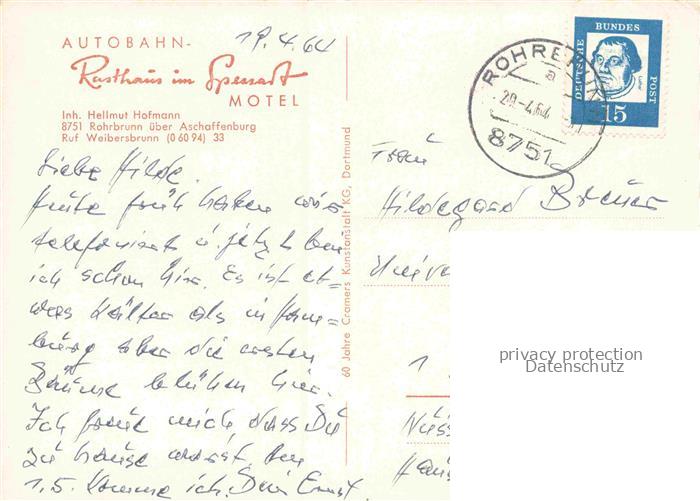 AUTOBAHN-
Rasthaus im Spessart
MOTEL
Inh. Hellmut Hofmann
8751 Rohrbrunn über Aschaffenburg
Ruf Weibersbrunn (0 60 94) 33
19.4.64
Liebe Hilde.
Heute früh haben wir
telefoniert u. jetzt bin
ich schon hier. Es ist et=
was kälter als in Ham=
burg aber die ersten
Bäume blühen hier.
Ich freue mich dass Du
zu hause warst. Am
1.5. komme ich. Dein Ernst.
60 Jahre Cramers Kunstanstalt KG, Dortmund
DEUTSCHE
BUNDES
POST
Luther
15
ROHRBRUNN
a
20.-4.64
8751
Frau
Hildegard Breuer
1
privacy protection
Datenschutz